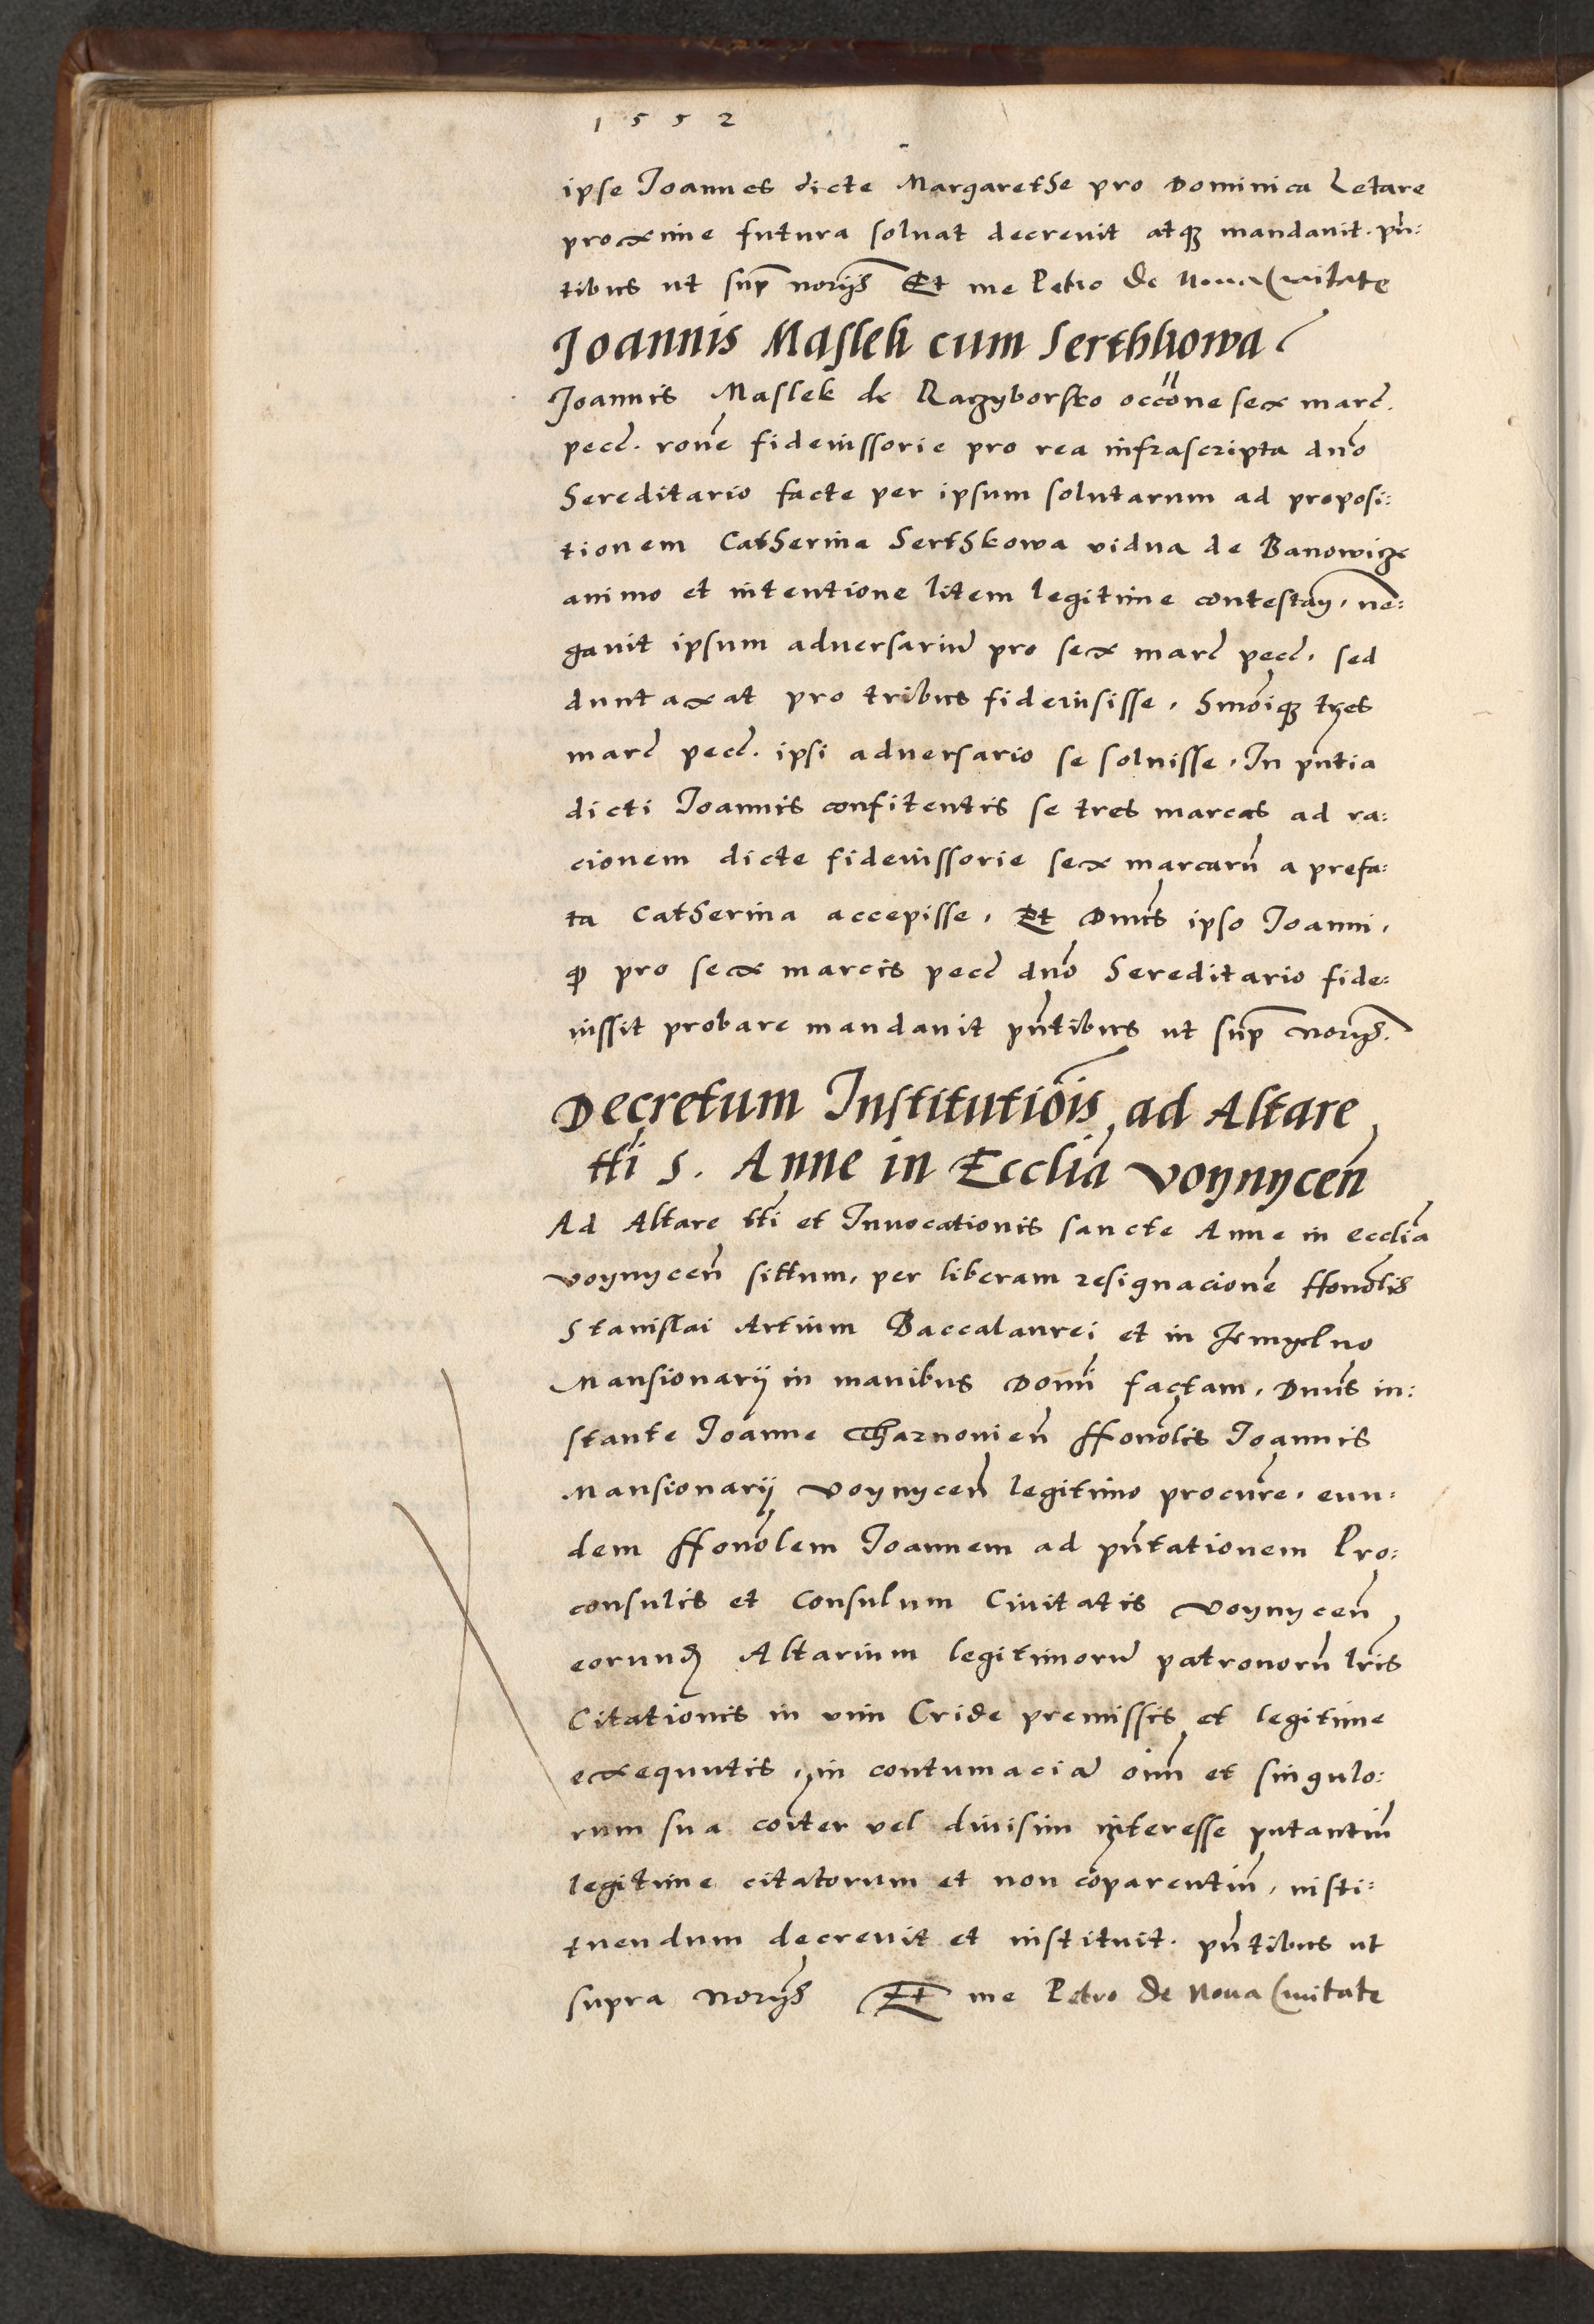 1552
ipse Joannes dicte Margarethe pro Dominica Letare
proxime futura soluat decreuit atqз mandauit. pñ:
tibus ut sup̄ noriјs Et me Petro de Noua Ciuitate
Joannis Maslek cum Serthkowa
Joannis Maslek de Raczyborsko occõne sex marc.
pecc. rone fideiussorie pro rea infrascripta dño
hereditario facte per ipsum solutarum ad proposi:
tionem Catherina Serthkowa vidua de Banowicze
animo et intentione litem legitime contestaņ, ne:
gauit ipsum aduersariũ pro sex marc pecc, sed
duntaxat pro tribus fideiussisse, Smõiqз tres
marc pecc. ipsi aduersario se soluisse, In pñtia
dicti Joannis confitentis se tres marcas ad ra:
cionem dicte fideiussorie sex marcarũ a prefa:
ta Catherina accepisse, Et Dnus ipso Joanni,
ꝙ pro sex marcis pecc dño hereditario fide:
iussit probare mandauit pñtibus ut sup̄ noriјs.
Decretum Institutiõis ad Altare
tti S. Anne in Ecclia Voynycen̄
Ad Altare tti et Inuocationis sancte Anne in ecclia
Voynycen̄ sittum, per liberam resignacionẽ Honoblis
Stanislai Artium Baccalaurei et in
Mansionarij in manibus Domni factam, Dnus in:
stante Joanne Tharnouien̄ Honoblis Joannis
Mansionarij Voynycen̄ legitimo procure, eun:
dem Honoblem Joannem ad pñtationem Pro:
consulis et Consulum Ciuitatis Voynycen̄
eorund Altarium legitimorũ patronorũ lris
Citationis in vim Cride premissis et legitime
exequutis, in contumaciã oim et singulo:
rum sua coiter vel diuisim interesse putantiũ
legitime citatorum et non cõparentiũ, insti:
tuendum decreuit et instituit. pñtibus ut
supra noriјs Et me Petro de Noua Ciuitate